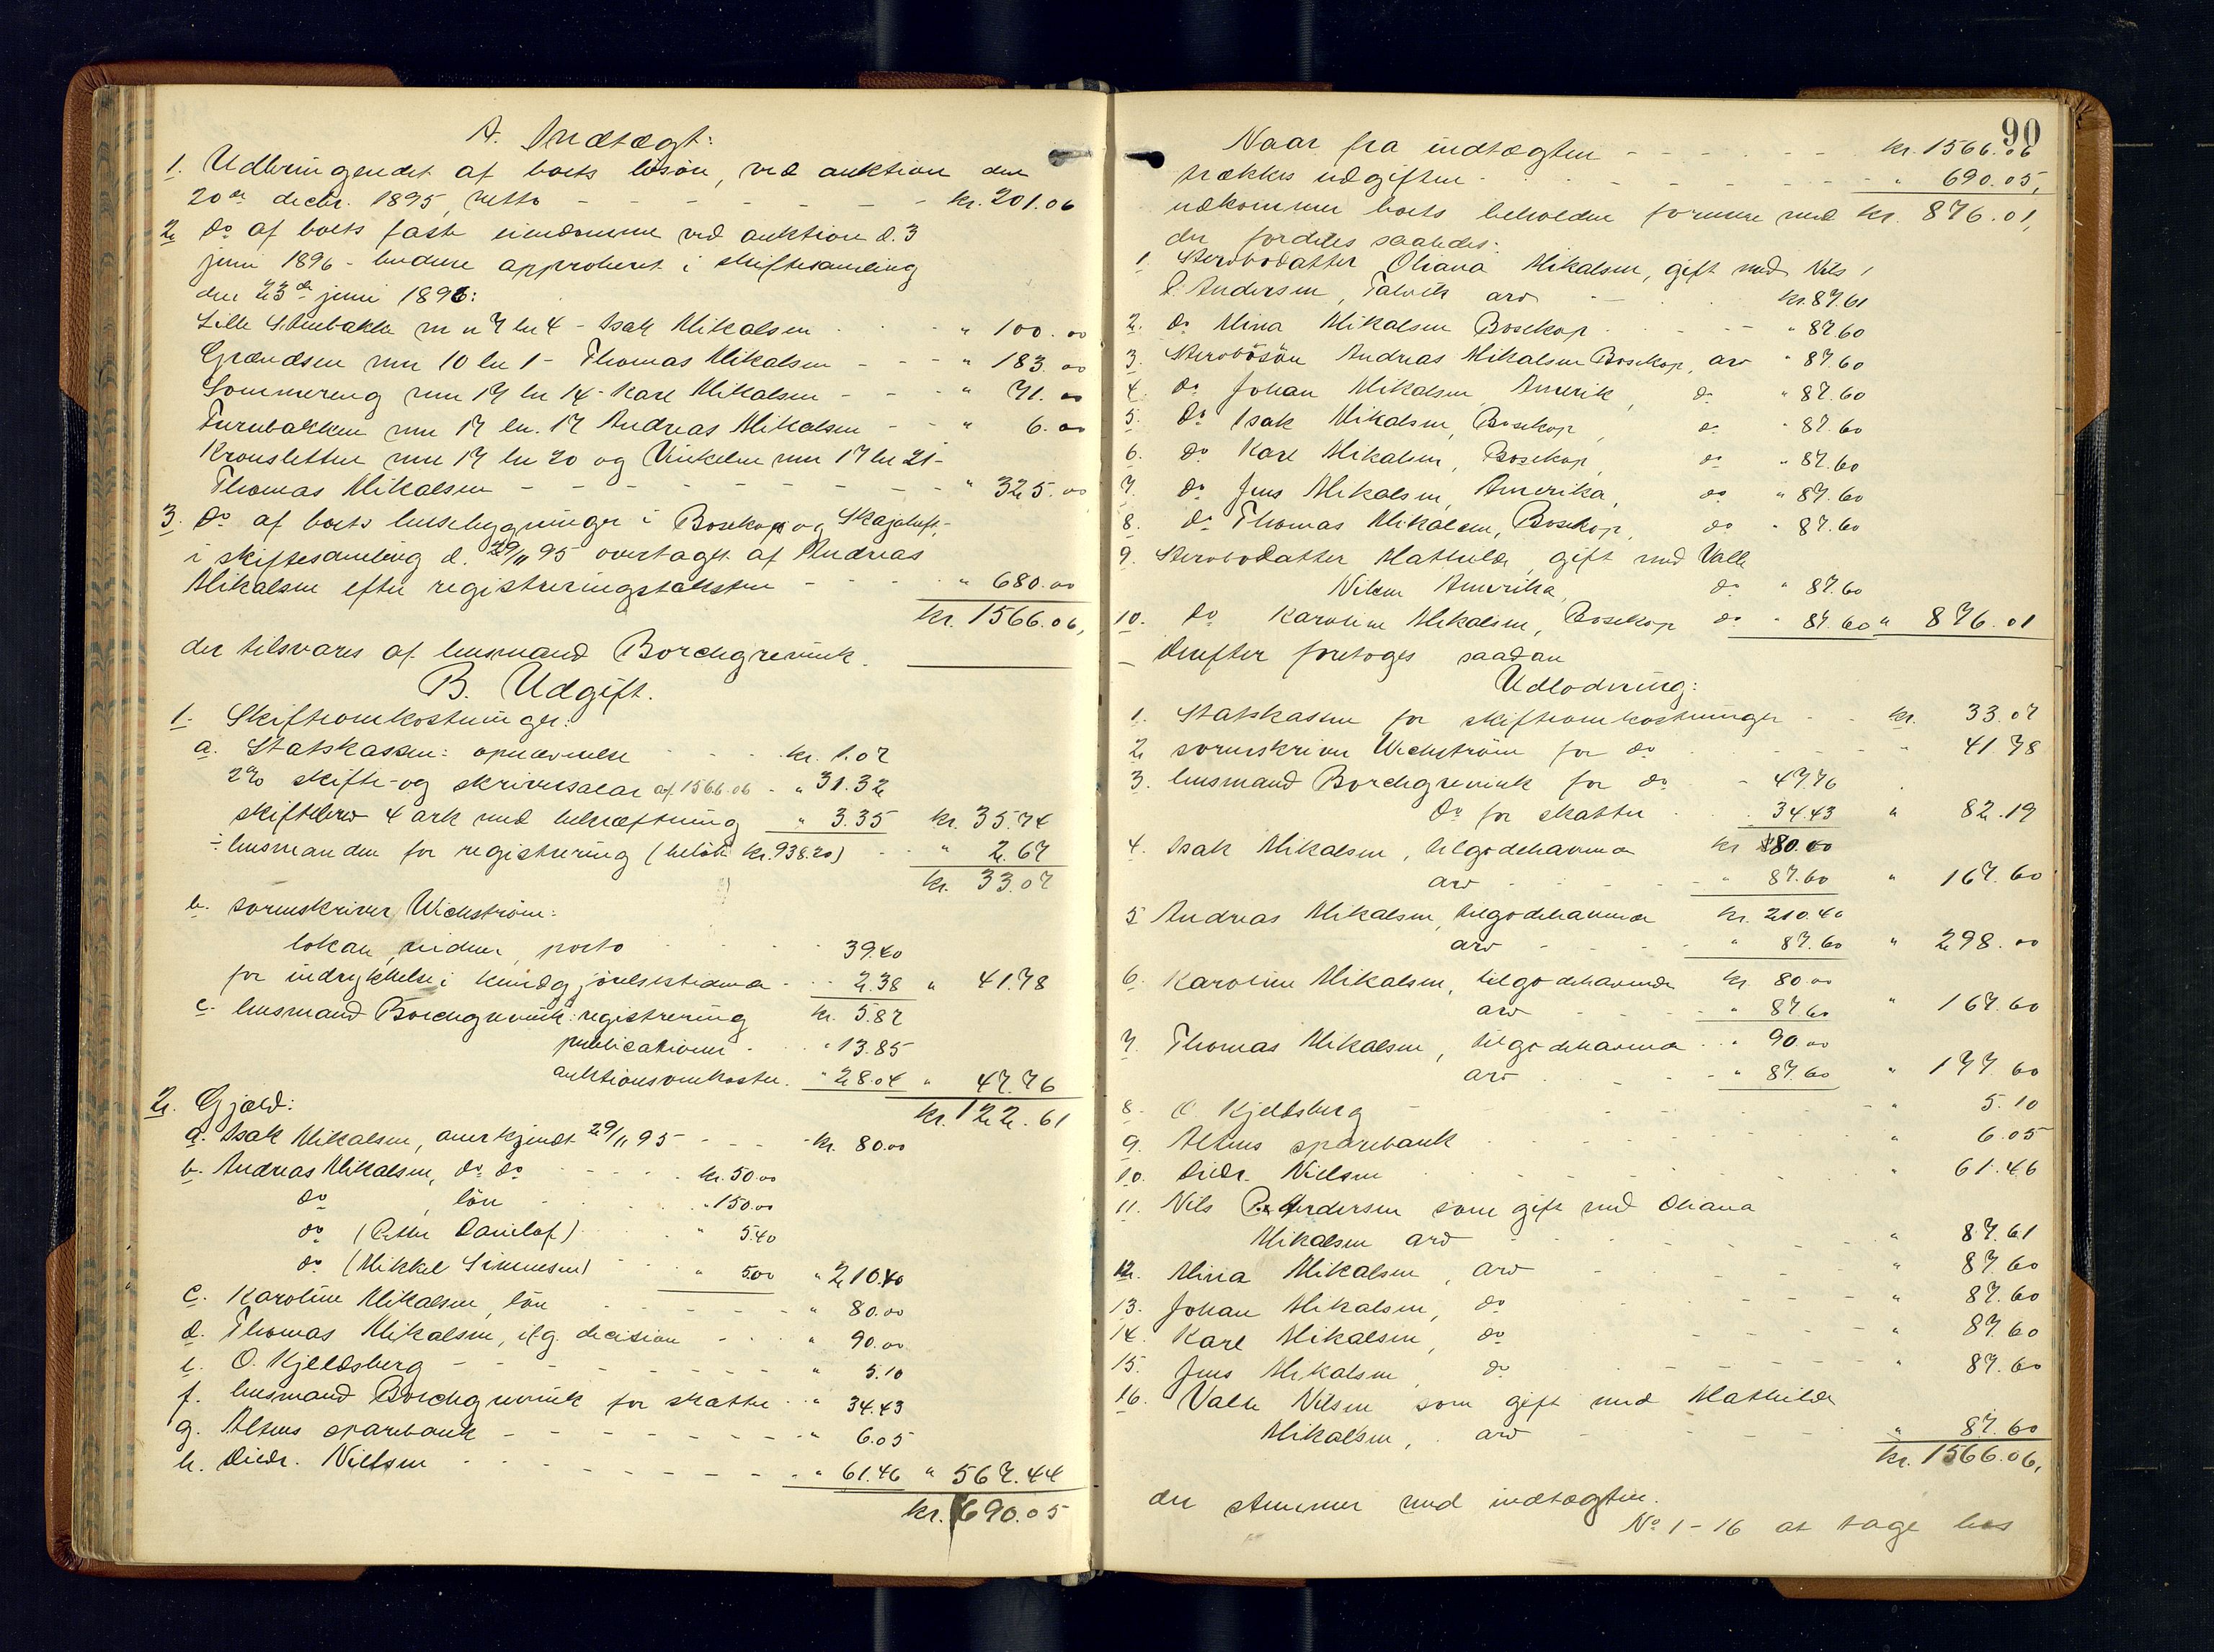 A. Indtægt:
1. Udbringendet af boets løsøre, ved auktion den
20de decbr. 1895, netto - - - - - - - kr. 201.06
2. Do af boets faste eiendomme ved auktion d. 3
juni 1896 - budene approberet i skiftesamling
den 23de juni 1896:
Lille Stenbakke m n 7 ln 4 - Isak Mikalsen . . . " 100.00
Grændsen mn 10 ln 1 - Thomas Mikalsen - - - " 183.00
Sommereng mn 17 ln 14 - Karl Mikalsen - - - " 71.00
Furubakken mn 17 ln. 17 Andreas Mikalsen - - " 6.00
Kronsletten mn 17 ln 20 og Vinkelen mn 17 ln 21 -
Thomas Mikalsen - - - - - - - - " 325.00
3. Do af boets husebygninger i Bosekop og Skajaluft,-
i skiftesamling d. 29/11 95 overtaget af Andreas
Mikalsen efter registreringstaksten - - - - " 680.00
kr. 1566.06,
der tilsvares af lensmand Borchgrevink.
B. Udgift.
1. Skifteomkostninger:
a. Statskassen: opnævnelse - - - kr. 1.07
2% skifte- og skriversalær af 1566.06 - " 31.32
skiftebrev 4 ark med bekræftning " 3.35 kr. 35.74
÷ lensmanden for registrering (beløb kr. 938.20) - " 2.67
kr. 33.07
b. sorenskriver Wickstrøm:
lokan, vidner, porto . . . 39.40
for indrykkelse i kundgjørelsestidende . . . 2.38 " 41.78
c. lensmand Borchgrevink: registrering kr. 5.87
publicationer - . . " 13.85
auktionsomkostn. . " 28.04 " 47.76
kr. 122.61
2. Gjæld:
a. Isak Mikalsen, anerkjendt 29/11 95 - - - - kr. 80.00
b. Andreas Mikalsen, do do . . . . kr. 50.00
do , løn . . . . " 150.00
do (Petter Danilof) . . . . " 5.40
do (Mikkel Simonsen) . . . " 5.00 " 210.40
c. Karoline Mikalsen, løn . . - - - - " 80.00
d. Thomas Mikalsen, ifg. decision - - . . " 90.00
e. O. Kjeldsberg - - - - - - - - " 5.10
f. lensmand Borchgrevink for skatter . . " 34.43
g. Altens sparebank - - - - - - - " 6.05
h. Diedr. Nielsen . . . - - - - - . " 61.46 " 567.44
kr. 690.05
90
Naar fra indtægten - - - - . - - - kr. 1566.06
trækkes udgiften . . . - - - - - - " 690.05,
udkommer boets beholdne formue med kr. 876.01,
der fordeles saaledes:
1. Stervbodatter Oliana Mikalsen, gift med Nils
P. Andersen, Talvik arv . - . . kr. 87.61
2. do Mina Mikalsen Bosekop . . - - - " 87.60
3. Stervbosøn Andreas Mikalsen Bosekop, arv " 87.60
4. do Johan Mikalsen, Amerik, do " 87.60
5. do Isak Mikalsen, Bosekop, do " 87.60
6. do Karl Mikalsen, Bosekop, do " 87.60
7. do Jens Mikalsen, Amerika, do " 87.60
8. do Thomas Mikalsen, Bosekop, do " 87.60
9. Stervbodatter Mathilde, gift med Valle
Nilsen Amerika, do " 87.60
10. Do Karoline Mikalsen, Bosekop do " 87.60 " 876.01
– Derefter foretoges saadan
Udlodning:
1. Statskassen for skifteomkostninger - . . kr. 33.07
2. sorenskriver Wickstrøm for do . . - - - - " 41.78
3. lensmand Borchgrevink for do . - 47.76
Do for skatter . . . 34.43 " 82.19
4. Isak Mikalsen, tilgodehavende kr 80.00
arv - . . - - - " 87.60 " 167.60
5 Andreas Mikalsen, tilgodehavende kr. 210.40
arv - - - - " 87.60 " 298.00
6. Karoline Mikalsen, tilgodehavende kr. 80.00
arv - - - - - " 87.60 " 167.60
7. Thomas Mikalsen, tilgodehavende . . " 90.00
arv . . - - - " 87.60 " 177.60
8. O. Kjeldsberg - . . - - - - - - " 5.10
9. Altens sparebank - . . . . . . . . " 6.05
10. Diedr. Nielsen . . . - - - - - . " 61.46
11. Nils P. Andersen som gift med Oliana
Mikalsen arv - - - - - - - " 87.61
12. Mina Mikalsen, arv - - - - - " 87.60
13. Johan Mikalsen, do . . - - - - - " 87.60
14. Karl Mikalsen, do . . - - - - - " 87.60
15. Jens Mikalsen, do . . - - - - - " 87.60
16. Valle Nilsen som gift med Mathilde
Mikalsen, . arv - - - - . " 87.60
kr. 1566.06,
der stemmer med indtægten.
No 1 - 16 at tage hos